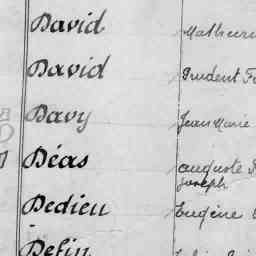 David Mathurin
David Prudent
Davy Jean Marie
Déas auguste
Joseph
Dedieu Eugène
Defin